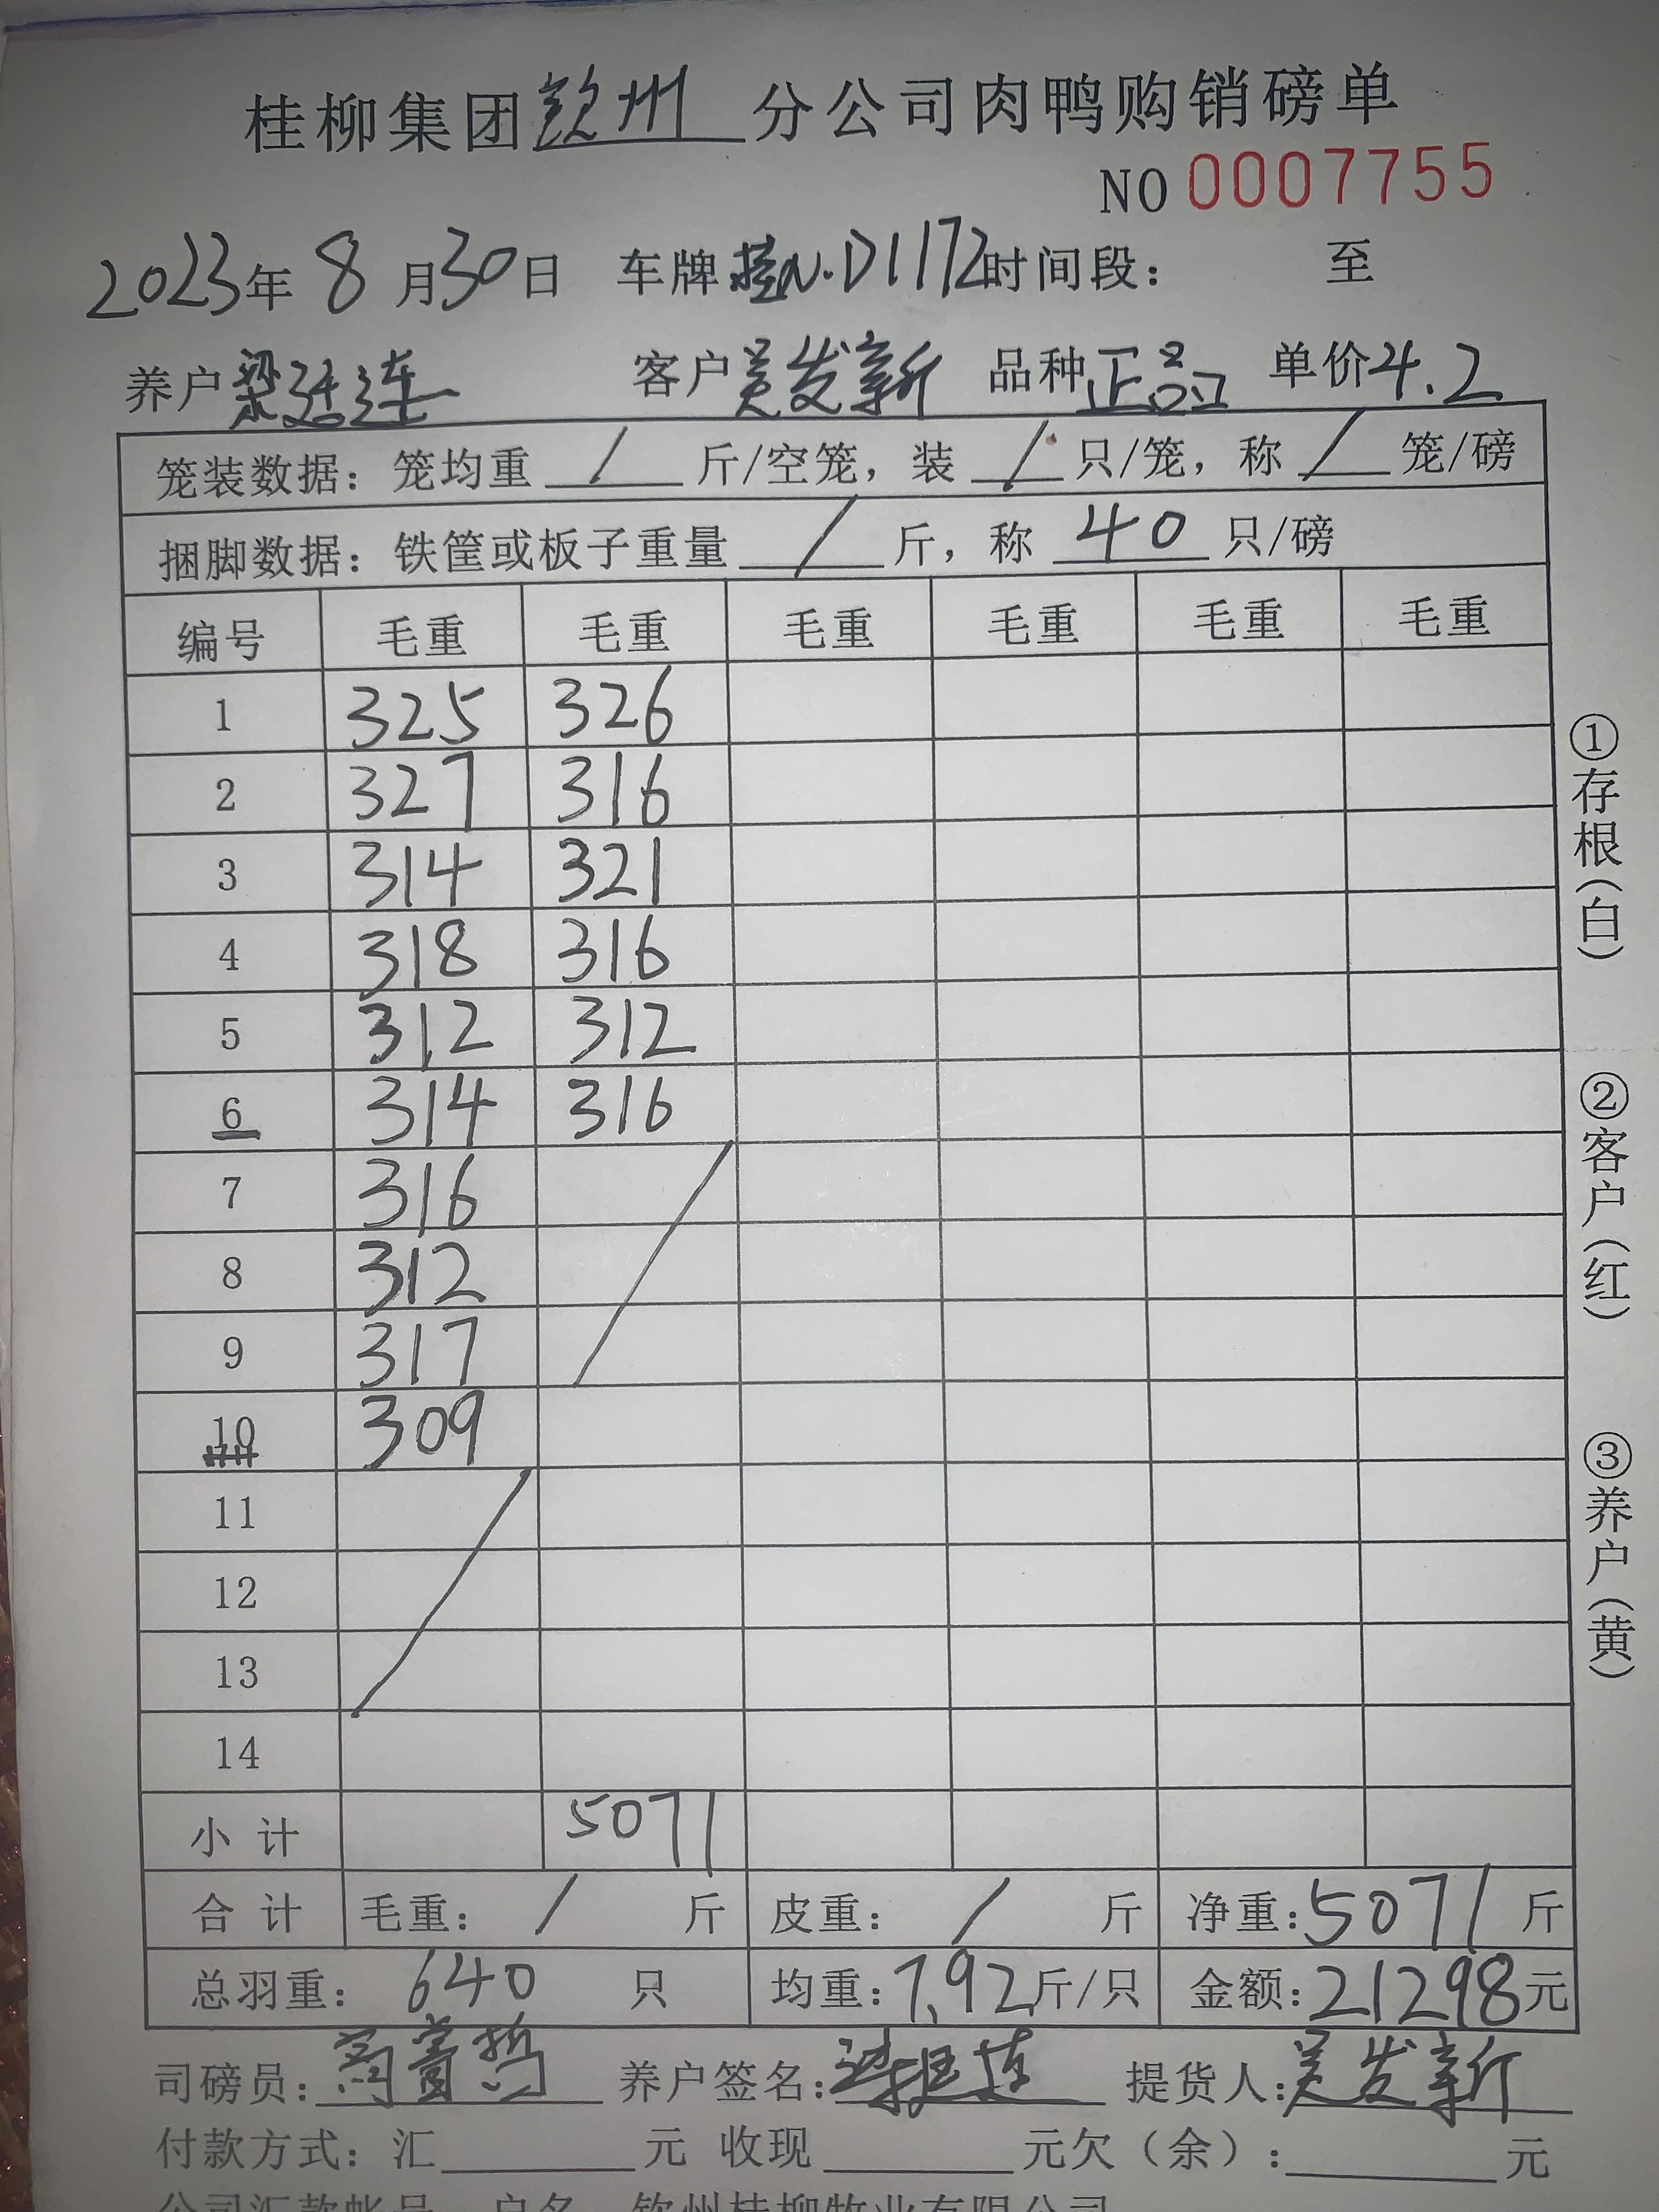 桂柳集团钦州分公司肉鸭购销磅单
NO 0007755
2023年 8 月30日 车牌桂N.D1172时间段： 至
养户梁廷连 客户吴发新 品种正品 单价4.2
笼装数据：笼均重 / 斤/空笼，装 / 只/笼，称 / 笼/磅
捆脚数据：铁筐或板子重量 / 斤，称 40 只/磅
编号 毛重 毛重 毛重 毛重 毛重 毛重
1 325 326
2 327 316
3 314 321
4 318 316
5 312 312
6 314 316
7 316
8 312
9 317
10 309
11
12
13
14
小 计 5071
合 计 毛重： / 斤 皮重： / 斤 净重：5071 斤
总羽重： 640 只 均重：7.92斤/只 金额：21298元
司磅员： 养户签名： 提货人：吴发新
付款方式：汇 元 收现 元欠（余）： 元
公司汇款帐号 户名 钦州桂柳牧业有限公司
①存根（白）
②客户（红）
③养户（黄）